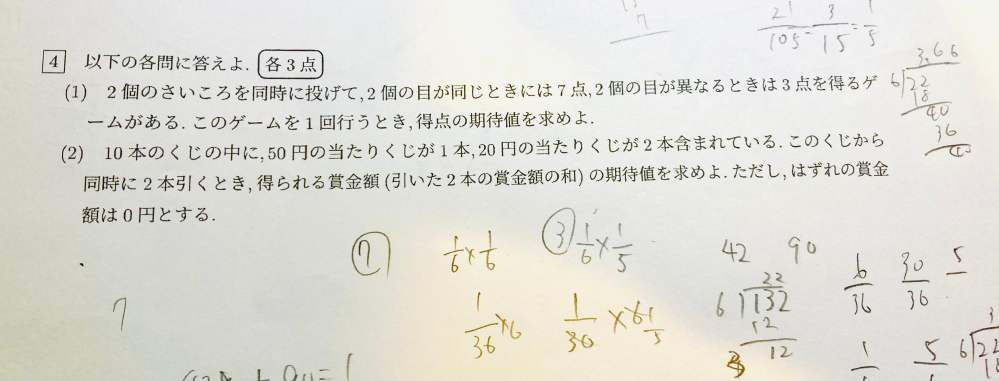 7
21/105 = 3/15 = 1/5
4 以下の各問に答えよ. 各3点
3.66
6)22
18
40
36
(1) 2個のさいころを同時に投げて, 2個の目が同じときには7点, 2個の目が異なるときは3点を得るゲ
ームがある. このゲームを1回行うとき, 得点の期待値を求めよ.
(2) 10本のくじの中に, 50円の当たりくじが1本, 20円の当たりくじが2本含まれている. このくじから
同時に2本引くとき, 得られる賞金額 (引いた2本の賞金額の和) の期待値を求めよ. ただし, はずれの賞金
額は0円とする.
⑦ 1/6 × 1/6 ③ 1/6 × 1/5
42 90
22
6)132
12
12
6/36 30/36 5
7
1/36 × 6 1/36 ×
1/5
1 5
3
6)22
18